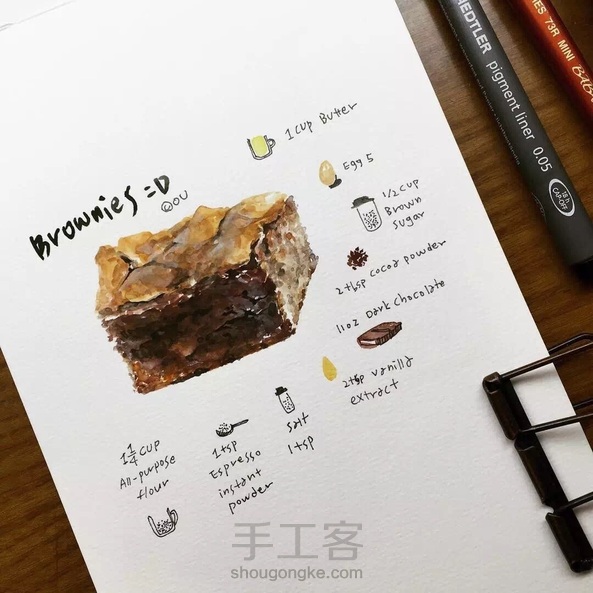 Brownies =D
@OU
1 cup Butter
Egg 5
1/2 cup
Brown
sugar
2 tbsp cocoa powder
11 oz Dark chocolate
2 tsp vanilla
extract
salt
1 tsp
1 tsp
Espresso
instant
powder
1 1/4 cup
All-purpose
flour
STAEDTLER pigment liner 0.05
18 h
CAP-OFF
73R MINI
手工客
shougongke.com